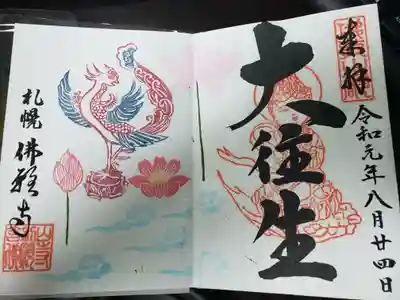 来拝
令和元年八月廿四日
大往生
札幌
佛願寺